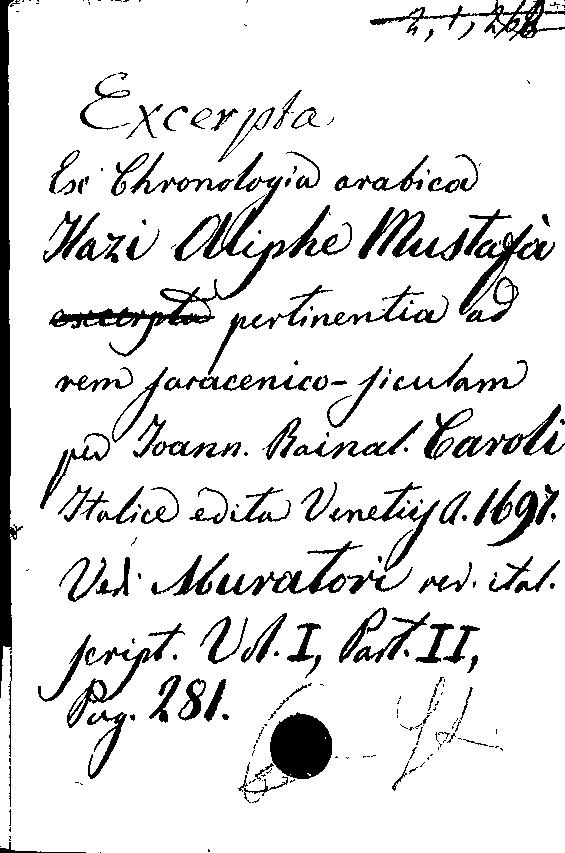 2, 1, 268
Excerpta
Ex Chronologia arabica
Hazi Aliphe Mustafà
excerpta pertinentia ad
rem saracenico-siculam
per Joann. Rainal. Caroli
Italice edita Venetijs A. 1697.
Ved. Muratori rer. ital.
script. Vol. I, Part. II,
Pag. 281.